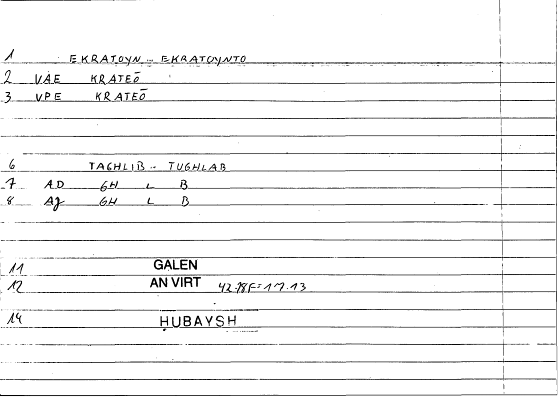 1 EKRATOYN - EKRATOYNTO
2 VAE KRATEŌ
3 VPE KRATEŌ
6 TAGHLIB - TUGHLAB
7 AD GH L B
8 AJ GH L B
11 GALEN
12 AN VIRT 42.18F=17.13
14 HUBAYSH